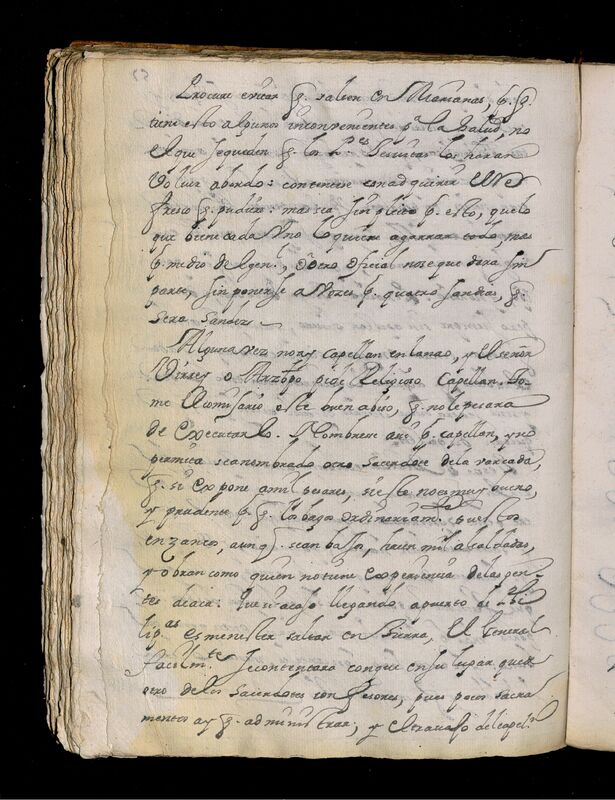 Procure evitar q. salten en Marianas, p. q.
tiene esto algunos inconvenientes pa. la Salud, no
el que se queden q. los Pes. Jesuitas los haran
volver abordo: contentese con adquirir
fresco q. pudiere: mas sea sin pleito p. esto, que lo
que viene cada Uno lo quiere agarrar todo, mas
p. medio del gen.l, o otro oficial no se que dara sin
parte, sin ponerse a Vozes p. quatro sandias, q.
sera sandez
Alguna vez no ay capellan en la nao, y el señor
Virrey o Arzpo pide Religioso Capellan. To-
me el comisario este buen aviso, q. no le pesara
de executarlo. Nombrese a si p. capellan, y no
permita sea nombrado otro sacerdote de la varcada,
q. se expone a mil pesares, si este no es muy bueno,
y prudente p. q. los vagos ordinariamte. puestos
en zancos, aunq. sean bajos, hacen mil asaldadas,
y obran como quien no tiene experiencia de las gen-
tes de aca: que si acaso llegando a puerto de Phi
lipas. es menester saltar en tierra, el General
facilmte. se contentara con que en su lugar quede
otro de los sacerdotes compañeros, pues pocos sacra
mentos ay q. administrar; y el travajo del capelln.